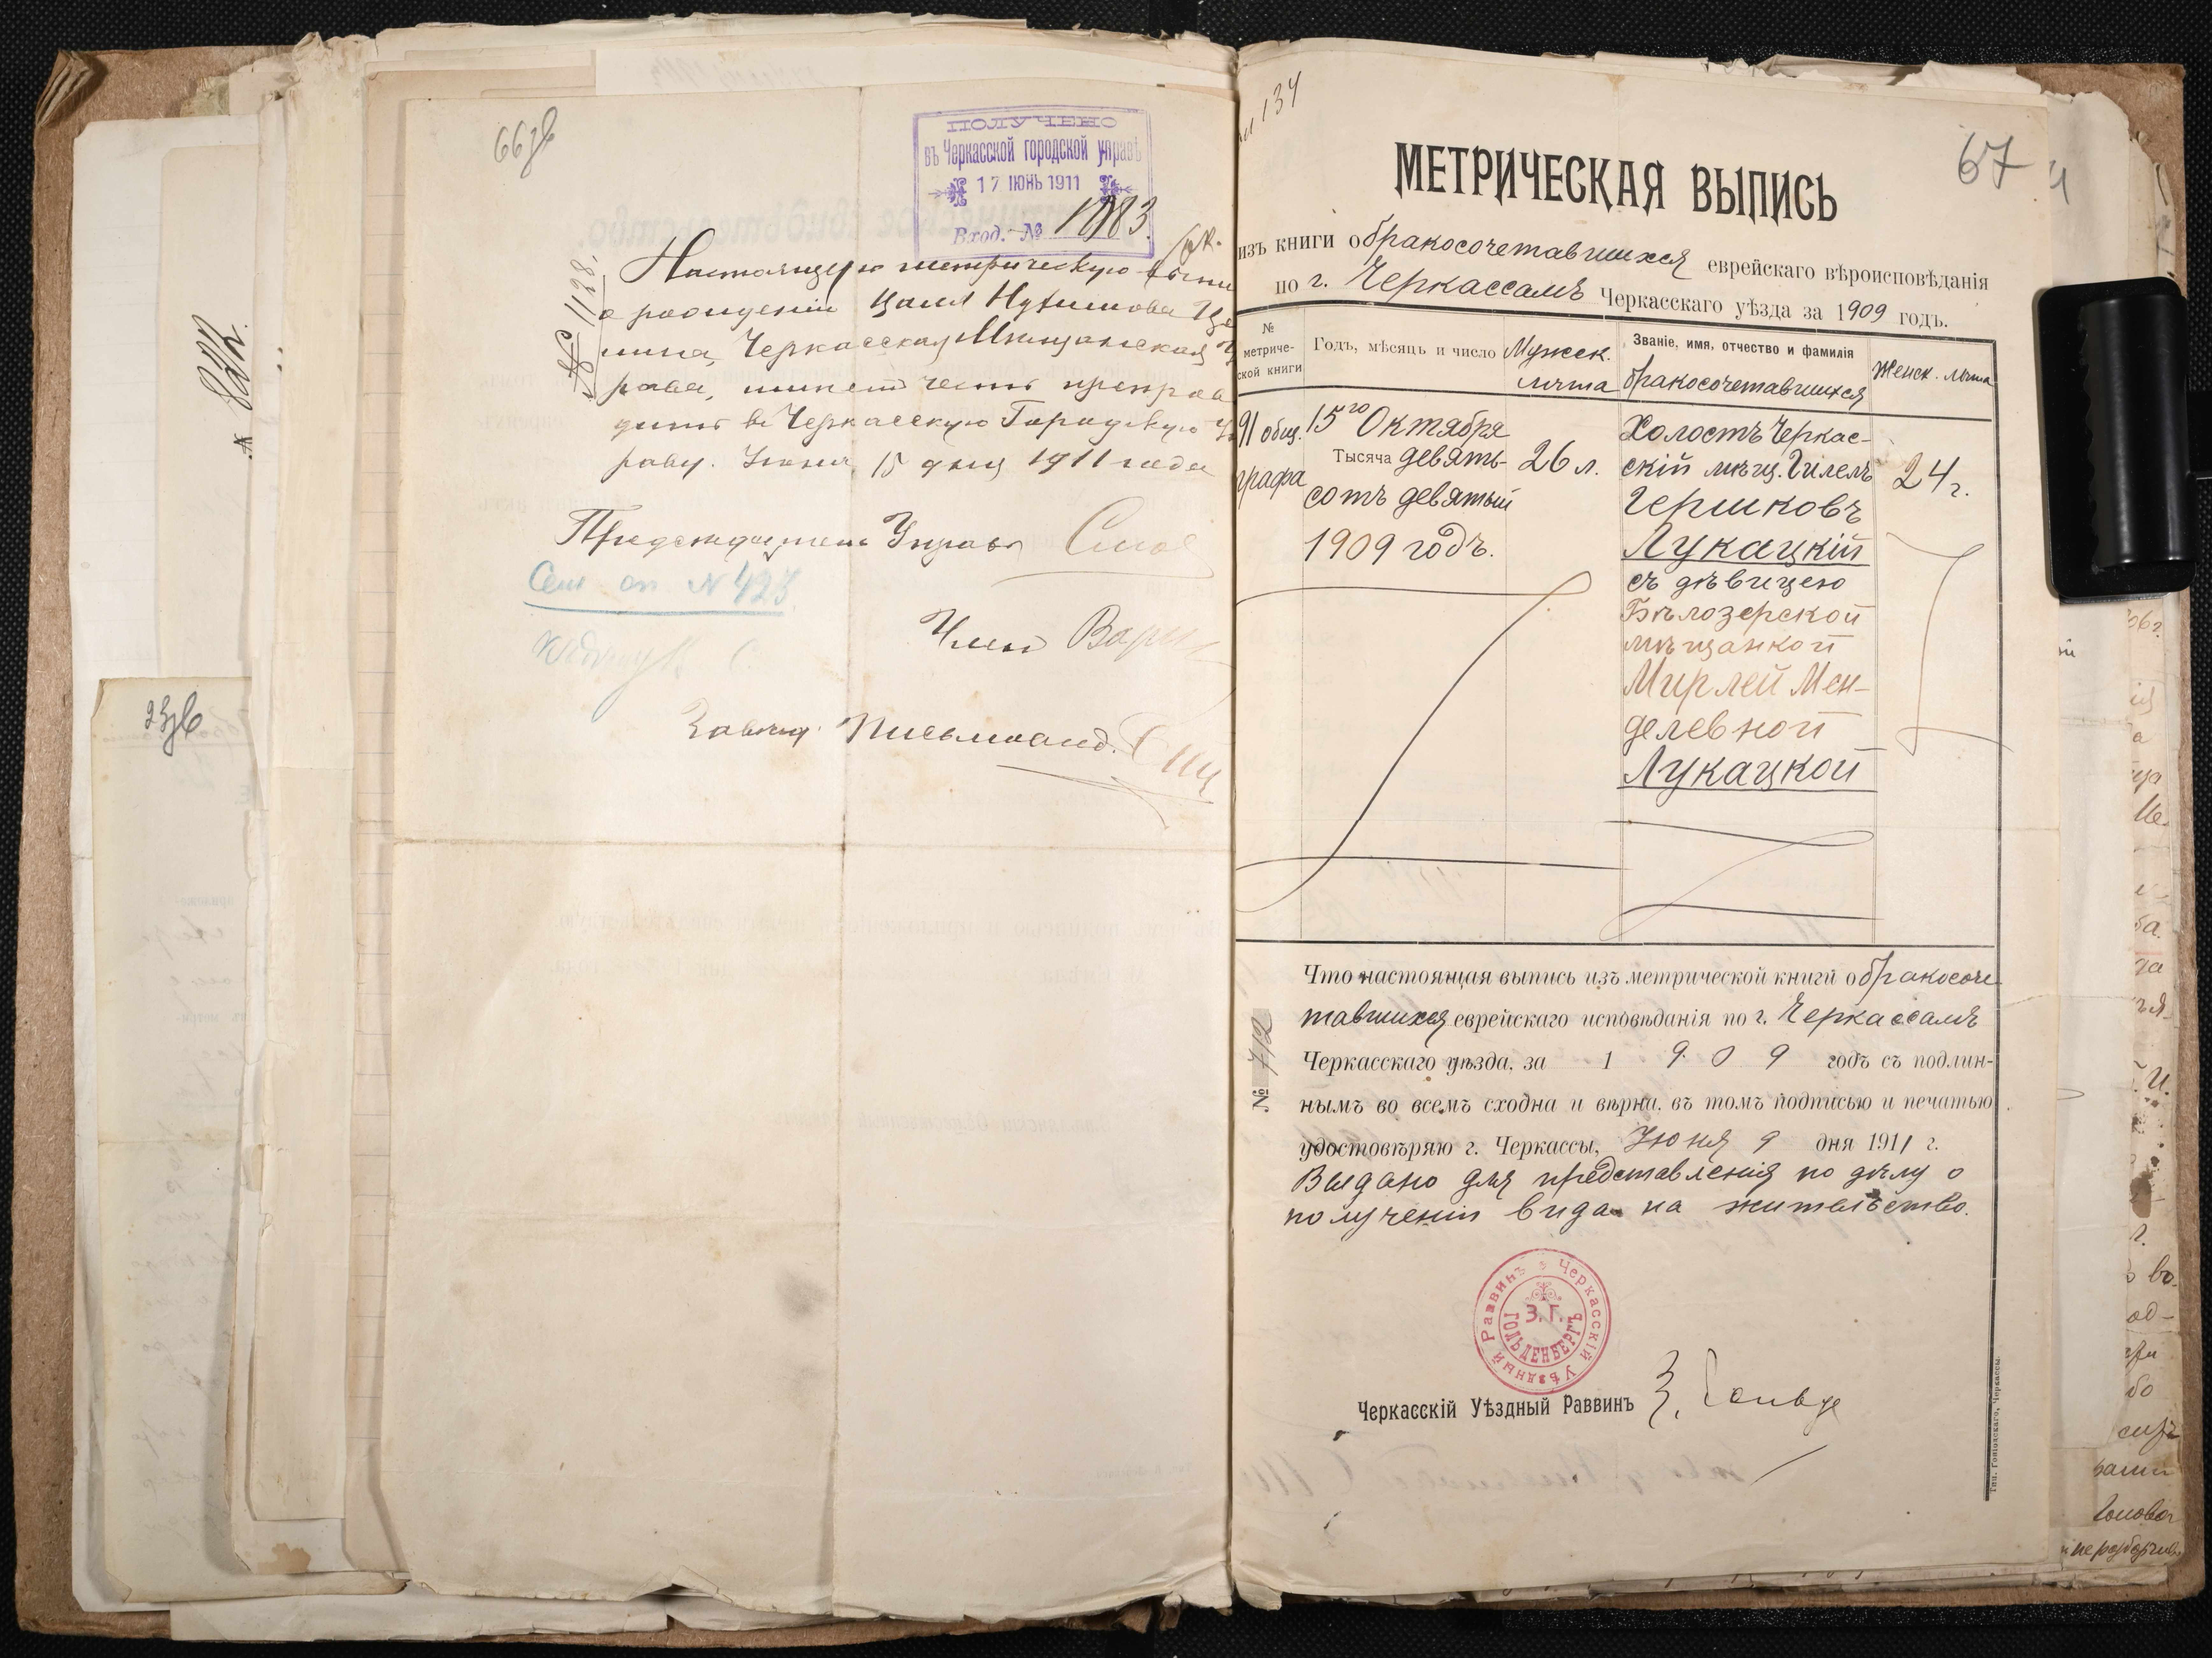 66 об
ПОЛУЧЕНО
въ Черкасской городской управѣ
17 ІЮНЬ 1911
Вход. №
№ 1128.
Настоящую метрическую
о рожденіи
Черкасская Мѣщанская
рава, имѣетъ честь препрово
дить въ Черкасскую Городскую У
раву. Іюня 15 дня 1911 года
Предсѣдатель Управы
№ 423
Членъ
Завѣд. Письмовод.
23 об
134
67
МЕТРИЧЕСКАЯ ВЫПИСЬ
изъ книги о бракосочетавшихся еврейскаго вѣроисповѣданія
по г. Черкассамъ Черкасскаго уѣзда за 1909 годъ.
№ метриче-ской книги
Годъ, мѣсяцъ и число
Мужск. лѣта
Званіе, имя, отчество и фамилія
бракосочетавшихся
Женск. лѣта
91 общ.
графа
15го Октября
Тысяча девять-
сотъ девятый
1909 годъ.
26 л.
Холостъ Черкас-
скій мѣщ. Гилель
Гершковъ
Лукацкій
съ дѣвицею
Бѣлозерской
мѣщанкой
Мирлей Мен-
делевной
Лукацкой
24 г.
Что настоящая выпись изъ метрической книги о бракосоче
тавшихся еврейскаго исповѣданія по г. Черкассамъ
Черкасскаго уѣзда, за 1909 годъ съ подлин-
нымъ во всемъ сходна и вѣрна, въ томъ подписью и печатью
удостовѣряю г. Черкассы, Іюня 9 дня 1911 г.
Выдано для представленія по дѣлу о
полученіи вида на жительство.
№ 712
Черкасскій Уѣздный Раввинъ
З. Г.
ГОЛЬДЕНБЕРГЪ
Черкасскій Уѣздный Раввинъ